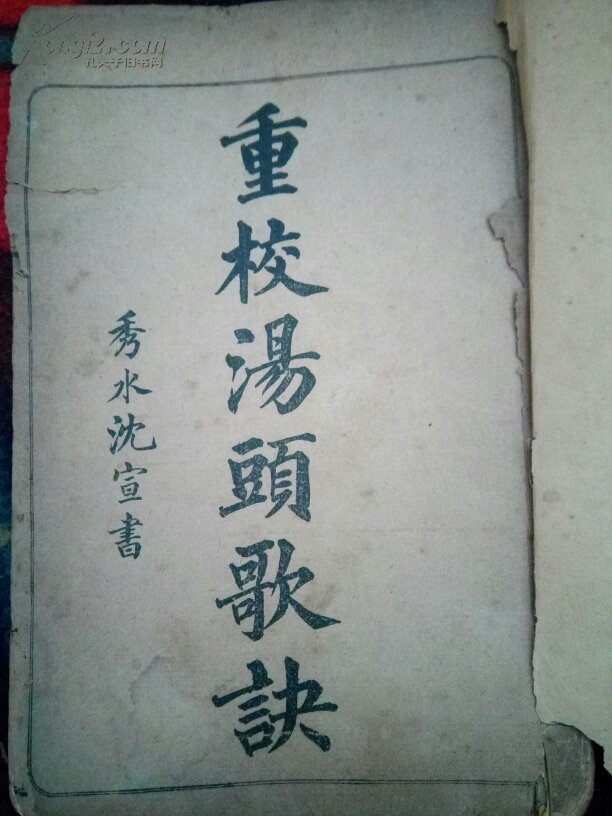 重校湯頭歌訣
秀水沈宣書
Kongfz.com
孔夫子旧书网